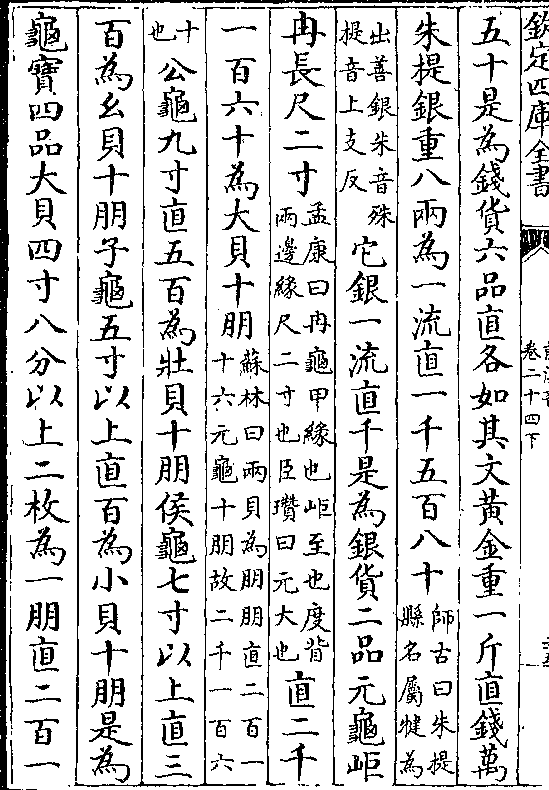 欽定四庫全書
卷二十四下
五十是為錢貨六品直各如其文黃金重一斤直錢萬
朱提銀重八兩為一流直一千五百八十師古曰朱提縣名屬犍為
出善銀朱音殊提音上支反它銀一流直千是為銀貨二品元龜岠
冉長尺二寸孟康曰冉龜甲緣也岠至也度背兩邊緣尺二寸也臣瓚曰元大也直二千
一百六十為大貝十朋蘇林曰兩貝為朋朋直二百一十六元龜十朋故二千一百六
十也公龜九寸直五百為壯貝十朋侯龜七寸以上直三
百為幺貝十朋子龜五寸以上直百為小貝十朋是為
龜寶四品大貝四寸八分以上二枚為一朋直二百一